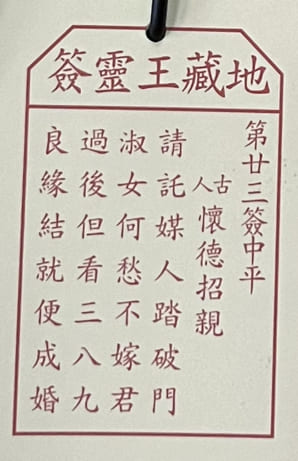 地藏王靈簽
第廿三簽中平
古人懷德招親
請託媒人踏破門
淑女何愁不嫁君
過後但看三八九
良緣結就便成婚